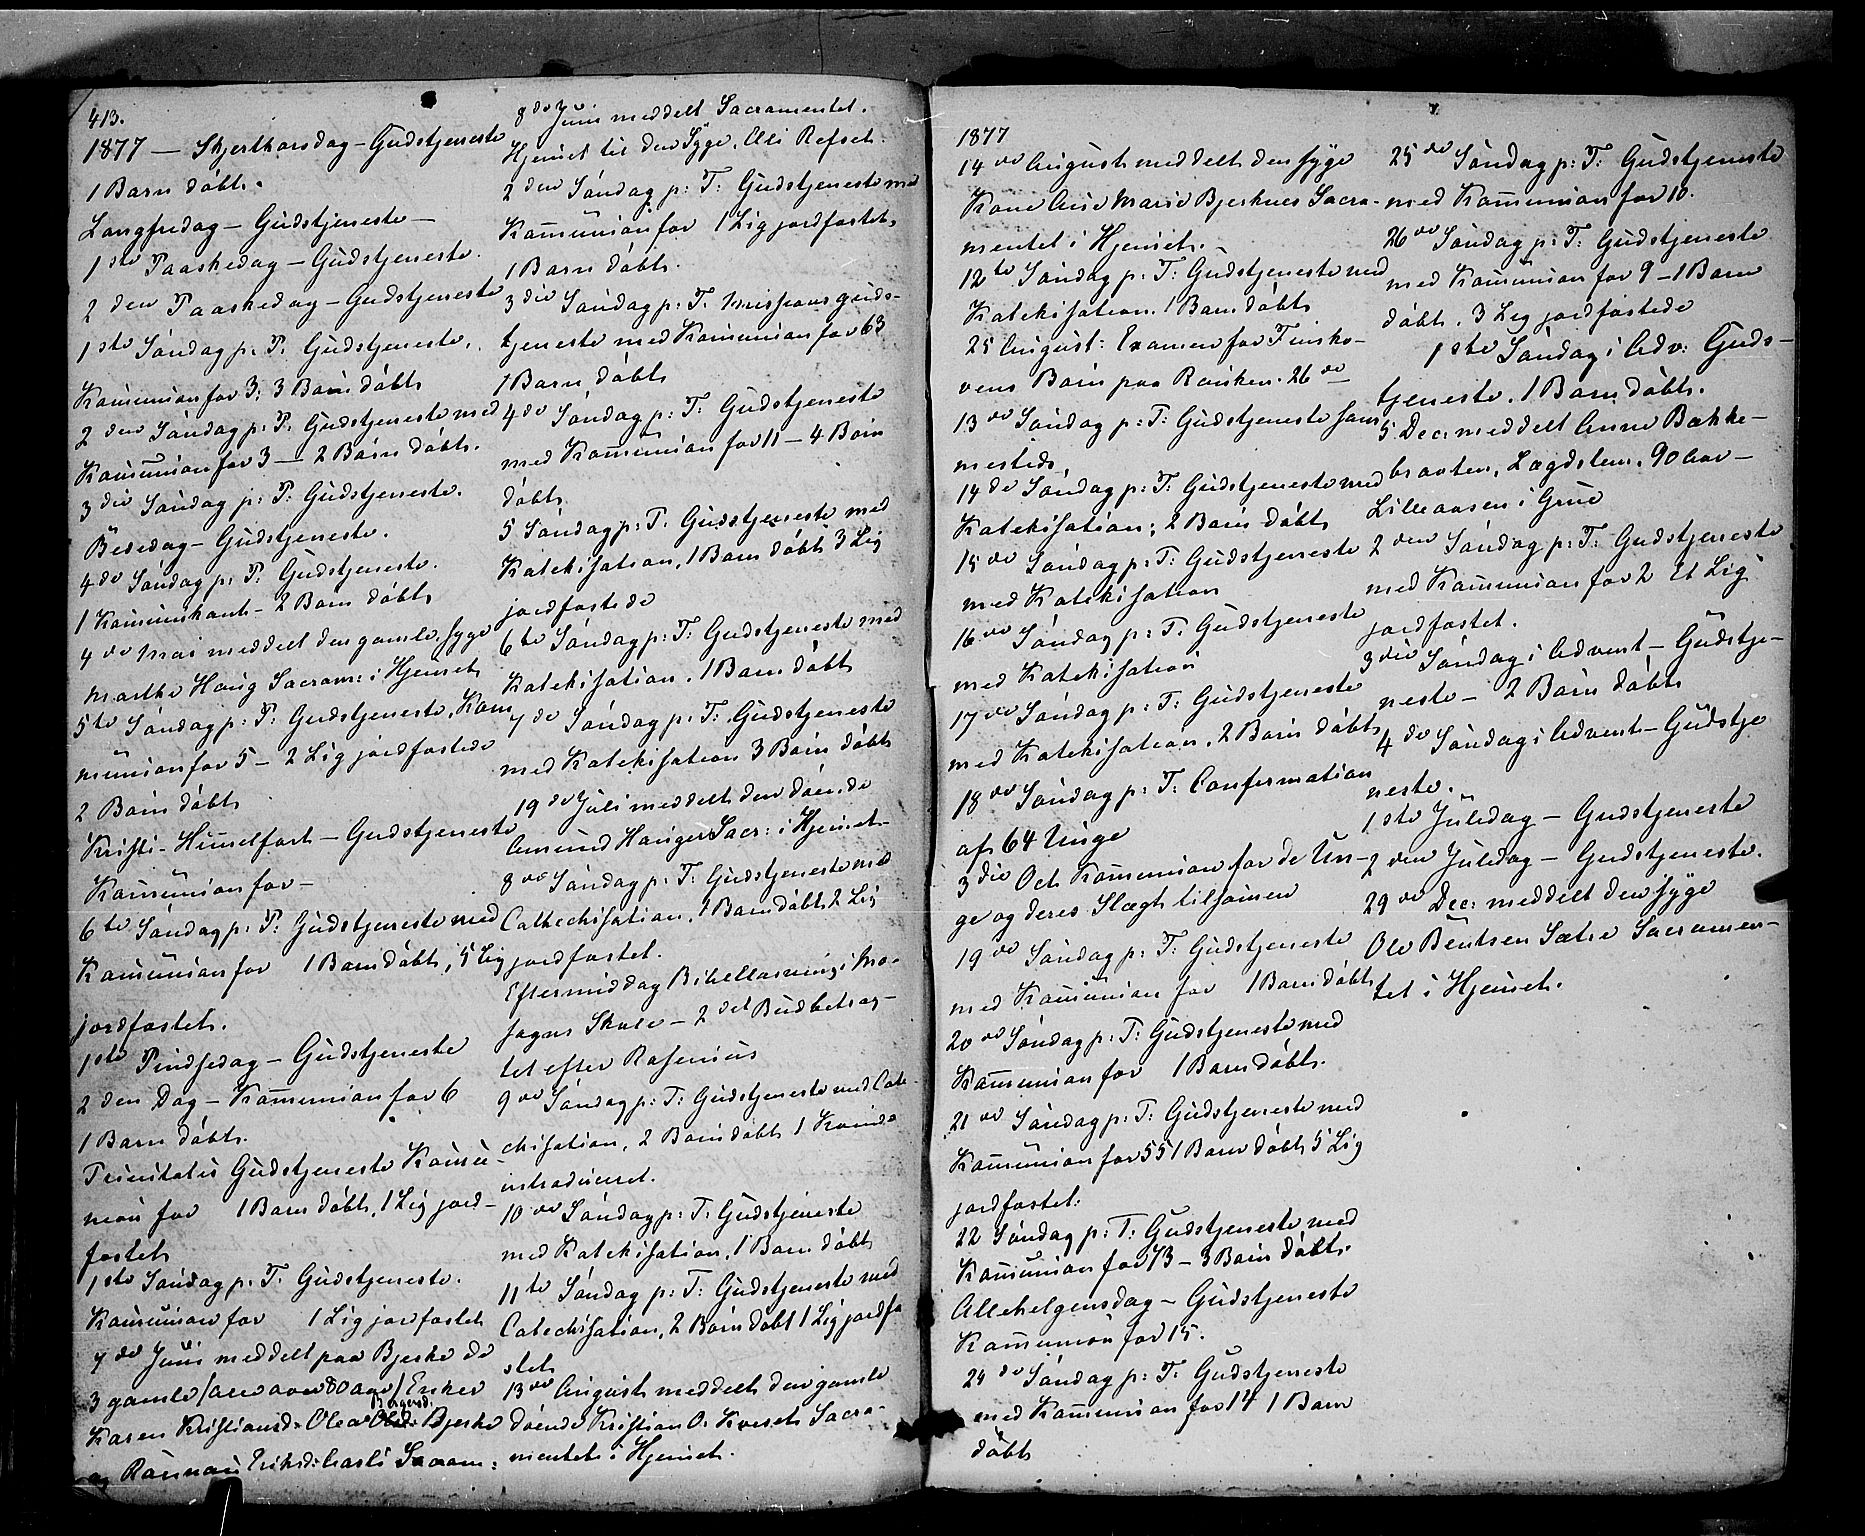 413.
1877 — Skjerthorsdag – Gudstjeneste
1 Barn døbt.
Langfredag – Gudstjeneste –
1ste Paaskedag – Gudstjeneste.
2den Paaskedag – Gudstjeneste
1ste Søndag p. P. Gudstjeneste.
Kommunion for 3; 3 Børn døbt
2den Søndag p: P. Gudstjeneste med
Kommunion for 3 – 2 Børn døbt.
3die Søndag p: P: Gudstjeneste.
Bededag – Gudstjeneste.
4de Søndag p: P: Gudstjeneste.
1 Kommunikant – 2 Børn døbt
4de Mai meddelt den gamle, syge
Marthe Haug Sacram: i Hjemet
5te Søndag p: P: Gudstjeneste, Kom
munion for 5 – 2 Lig jordfæstede
2 Børn døbt
Kristi-Himmelfart – Gudstjeneste
Kommunion for –
6te Søndag p: P: Gudstjeneste med
Kommunion for 1 Barn døbt, 5 Lig
jordfæstet.
1ste Pindsedag – Gudstjeneste
2den Dag – Kommunion for 6
1 Barn døbt.
Trinitatis Gudstjeneste Kommu-
nion for 1 Barn døbt, 1 Lig jord-
fæstet
1ste Søndag p: T. Gudstjeneste.
Kommunion for 1 Lig jordfæstet
7de Juni meddelt paa Bjerke de
3 gamle /alle over 80 aar/ Enker
Karen Kristiansd. Olea Bjerke
og Rønnau Eriksd: Sacram:
8de Juni meddelt Sacramentet.
Hjemet til den Syge, Eli Refset.
2den Søndag p: T: Gudstjeneste med
Kommunion for 1 Lig jordfæstet,
1 Barn døbt.
3die Søndag p: T. Missionsguds-
tjeneste med Kommunion for 63
1 Barn døbt
4de Søndag p: T: Gudstjeneste
med Kommunion for 11 – 4 Børn
døbt
5 Søndag p: T. Gudstjeneste med
Katekisation, 1 Barn døbt 3 Lig
jordfæstede
6te Søndag p: T: Gudstjeneste med
Katekisation, 1 Barn døbt
7de Søndag p: T: Gudstjeneste
med Katekisation 3 Børn døbt
19de Juli meddelt den døende
Amund Hanger Sacr: i Hjemet
8de Søndag p: T: Gudstjeneste med
Cathechisation, 1 Barn døbt, 2 Lig
jordfæstet.
Eftermiddag Bibellæsning i Mo-
sogns Skole – 2det Bud betrag-
tet efter Rosenius
9de Søndag p: T: Gudstjeneste med Cate-
chisation, 2 Børn døbt 1 Kvinde
introduceret.
10de Søndag p: T: Gudstjeneste
med Katekisation, 1 Barn døbt
11te Søndag p: T: Gudstjeneste med
Catechisation, 2 Børn døbt 1 Lig jordfæ
stet
13de August meddelt den gamle
døende Kristian O. Kveset Sacra-
mentet i Hjemet.
1877
14de August meddelt den syge
Kone Anne Marie Bjerknes Sacra-
mentet i Hjemet. –
12te Søndag p: T: Gudstjeneste med
Katekisation. 1 Barn døbt
25 August: Examen for Finsko-
vens Børn paa Rønken. 26de
13de Søndag p: T: Gudstjeneste sam
mesteds.
14de Søndag p: T: Gudstjeneste med
Katekisation; 2 Børn døbt
15de Søndag p: T: Gudstjeneste
med Katekisation
16de Søndag p: T. Gudstjeneste
med Katekisation
17de Søndag p: T: Gudstjeneste
med Katekisation, 2 Børn døbt
18de Søndag p: T. Confermation
af 64 Unge
3die Oct Kommunion for de Un-
ge og deres Slægt tilsamen
19de Søndag p: T: Gudstjeneste
med Kommunion for 1 Barn døbt
20de Søndag p: T: Gudstjeneste med
Kommunion for 1 Barn døbt.
21de Søndag p: T: Gudstjeneste med
Kommunion for 55 1 Barn døbt 5 Lig
jordfæstet.
22 Søndag p: T: Gudstjeneste med
Kommunion for 13 – 3 Børn døbt.
Allehelgensdag – Gudstjeneste
Kommunion for 15.
24de Søndag p: T: Gudstjeneste
med Kommunion for 14 1 Barn
døbt
25de Søndag p: T: Gudstjeneste
med Kommunion for 10.
26de Søndag p: T: Gudstjeneste
med Kommunion for 9 – 1 Barn
døbt. 3 Lig jordfæstede
1ste Søndag i Adv: Guds-
tjeneste. 1 Barn døbt.
5 Dec: meddelt Anne Bække-
braaten, Lægdslem, 90 Aar –
Lilleaasen i Grue
2den Søndag p: T: Gudstjeneste
med Kommunion for 2 Et Lig
jordfæstet.
3die Søndag i Advent – Gudstje-
neste – 2 Børn døbt
4de Søndag i Advent – Gudstje
neste.
1ste Juledag – Gudstjeneste
2den Juledag – Gudstjeneste.
29de Dec: meddelt den syge
Ole Bentsen Sætre Sacramen-
tet i Hjemet.